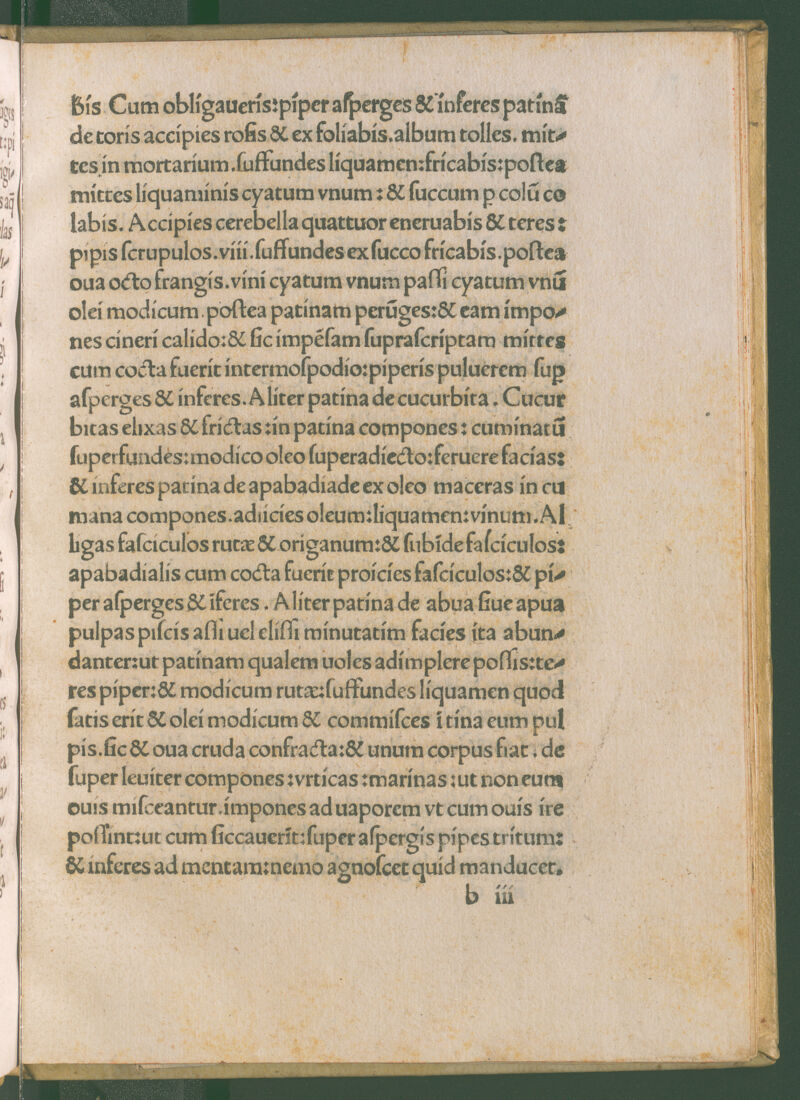 bis Cum obligaueris:piper aſperges & inferes patinā
de toris accipies roſis & ex foliabis.album tolles. mit⸗
tes in mortarium.ſuffundes liquamen:fricabis:poſtea
mittes liquaminis cyatum vnum : & ſuccum p colū co
labis. Accipies cerebella quattuor eneruabis & teres :
pipis ſcrupulos.viii.ſuffundes ex ſucco fricabis.poſtea
oua octo frangis.vini cyatum vnum paſſi cyatum vnū
olei modicum.poſtea patinam perūges:& eam impo⸗
nes cineri calido:& ſic impēſam ſupraſcriptam mittes
cum cocta fuerit intermoſpodio:piperis puluerem ſup
aſperges & inferes. Aliter patina de cucurbita. Cucur
bitas elixas & frictas :in patina compones : cuminatū
ſuperfundes:modico oleo ſuperadiecto:feruere facias:
& inferes patina de apabadiade ex oleo maceras in cu
mana compones.adiicies oleum:liquamen:vinum.Al
ligas faſciculos rutæ & origanum:& ſubīde faſciculos:
apabadialis cum cocta fuerit proicies faſciculos:& pi⸗
per aſperges & īferes . Aliter patina de abua ſiue apua
pulpas piſcis aſſi uel eliſſi minutatim facies ita abun⸗
danter:ut patinam qualem uoles adimplere poſſis:te⸗
res piper:& modicum rutæ:ſuffundes liquamen quod
ſatis erit & olei modicum & commiſces ī tina eum pul
pis.ſic & oua cruda confracta:& unum corpus fiat. de
ſuper leuiter compones :vrticas :marinas :ut non eum
ouis miſceantur.impones ad uaporem vt cum ouis ire
poſſint:ut cum ſiccauerīt:ſuper aſpergis pipes tritum:
& inferes ad mentam:nemo agnoſcet quid manducet.
b iii